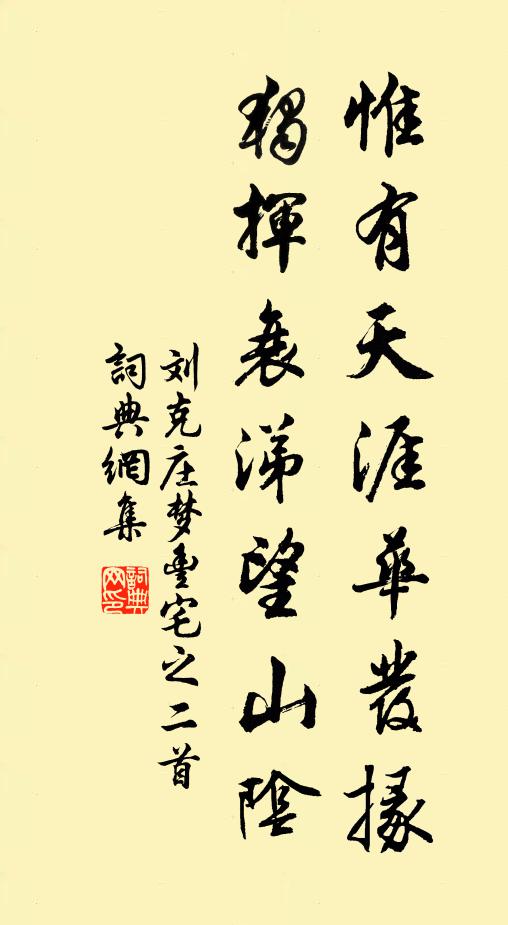 惟有天涯華發掾
獨揮衰涕望山陰
刘克庄梦豊宅之二首
詞典網集
詞典网印